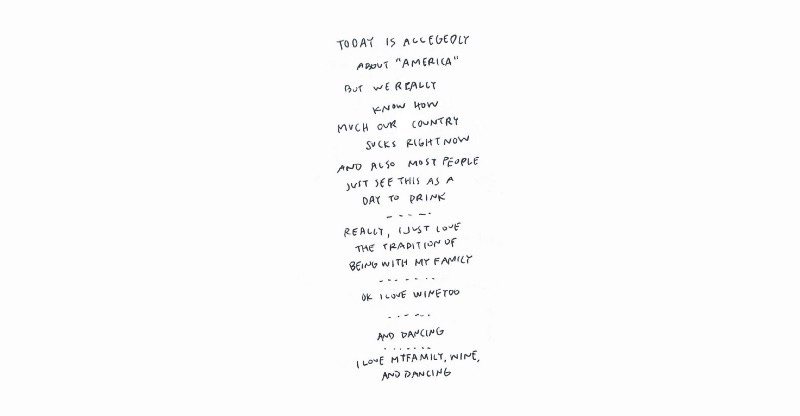 TODAY IS ALLEGEDLY
ABOUT "AMERICA"
BUT WE REALLY
KNOW HOW
MUCH OUR COUNTRY
SUCKS RIGHT NOW
AND ALSO MOST PEOPLE
JUST SEE THIS AS A
DAY TO DRINK
- - - - -
REALLY, I JUST LOVE
THE TRADITION OF
BEING WITH MY FAMILY
- - - - - - -
OK I LOVE WINE TOO
- - - - -
AND DANCING
- - - - - - -
I LOVE MY FAMILY, WINE,
AND DANCING